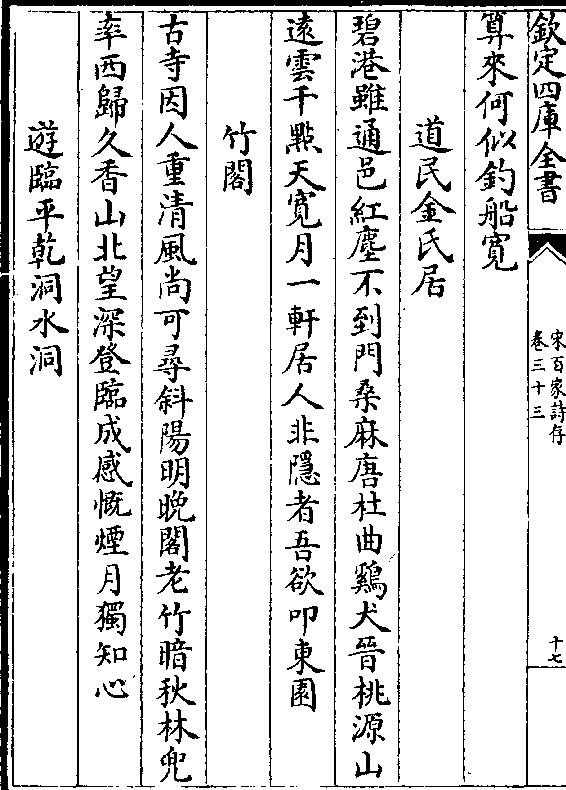 欽定四庫全書
宋百家詩存
卷三十三
十七
算來何似釣船寬
道民金氏居
碧港雖通邑紅塵不到門桑麻唐杜曲鷄犬晉桃源山
遠雲千點天寛月一軒居人非隱者吾欲叩東園
竹閣
古寺因人重清風尚可尋斜陽明晩閣老竹暗秋林兜
率西歸久香山北望深登臨成感慨煙月獨知心
遊臨平乾洞水洞